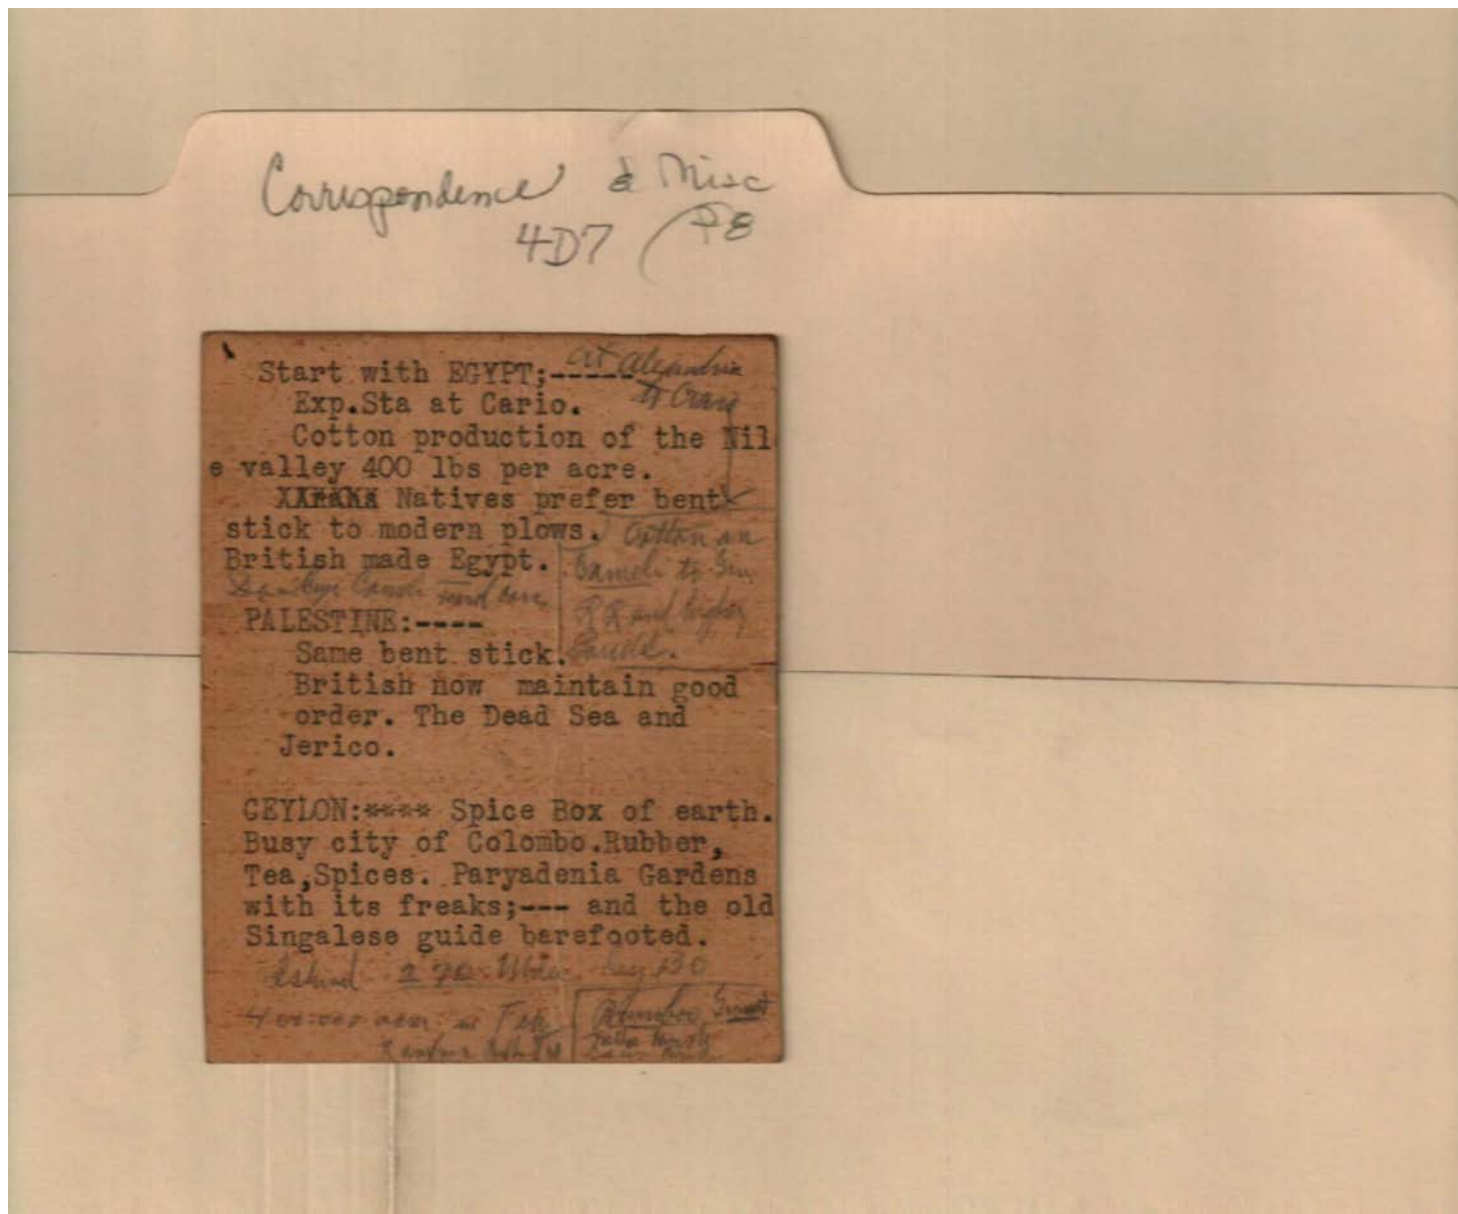 Correspondence & Misc
4D7
Start with EGYPT;-----
at
Exp.Sta at Cario.
Cotton production of the Nil
e valley 400 lbs per acre.
Natives prefer bent
stick to modern plows.
Cotton on
British made Egypt.
Camels to
and
PALESTINE:----
RR and
Same bent stick.
British now maintain good
order. The Dead Sea and
Jerico.
CEYLON:**** Spice Box of earth.
Busy city of Colombo.Rubber,
Tea,Spices. Paryadenia Gardens
with its freaks;--- and the old
Singalese guide barefooted.
Island 270 Miles by 130
400:000 in Tea